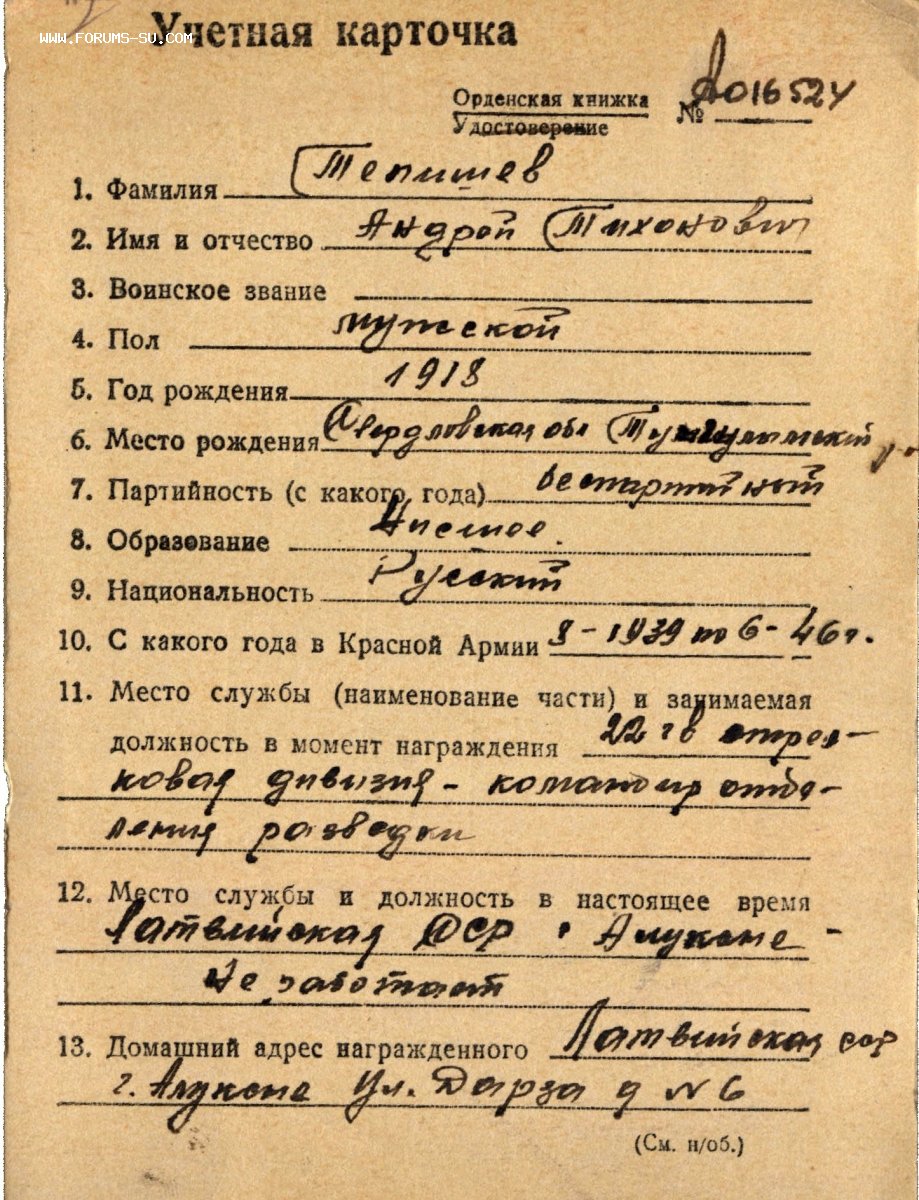 www.forums-su.com
Учетная карточка
Орденская книжка
Удостоверение
№ А016524
1. Фамилия Тепишев
2. Имя и отчество Андрей Тихонович
3. Воинское звание
4. Пол мужской
5. Год рождения 1918
6. Место рождения Свердловская обл Тугулымский р-
7. Партийность (с какого года) беспартийный
8. Образование Низшее
9. Национальность Русский
10. С какого года в Красной Армии 9-1939 по 6-46 г.
11. Место службы (наименование части) и занимаемая
должность в момент награждения 22 гв стрел-
ковая дивизия - командир отде-
ления разведки
12. Место службы и должность в настоящее время
Латвийская ССР г Алуксне -
Не работает
13. Домашний адрес награжденного Латвийская ССР
г. Алуксне ул. Дарза д N 6
(См. н/об.)